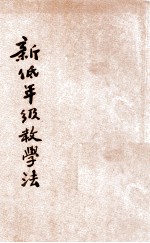 新低年级教學法